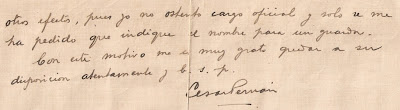 otros efectos, pues yo no ostento cargo oficial y solo se me
ha pedido que indique el nombre para un guarda.
Con este motivo me es muy grato quedar a su
disposición atentamente y b. s. p.
Cesar Pemán